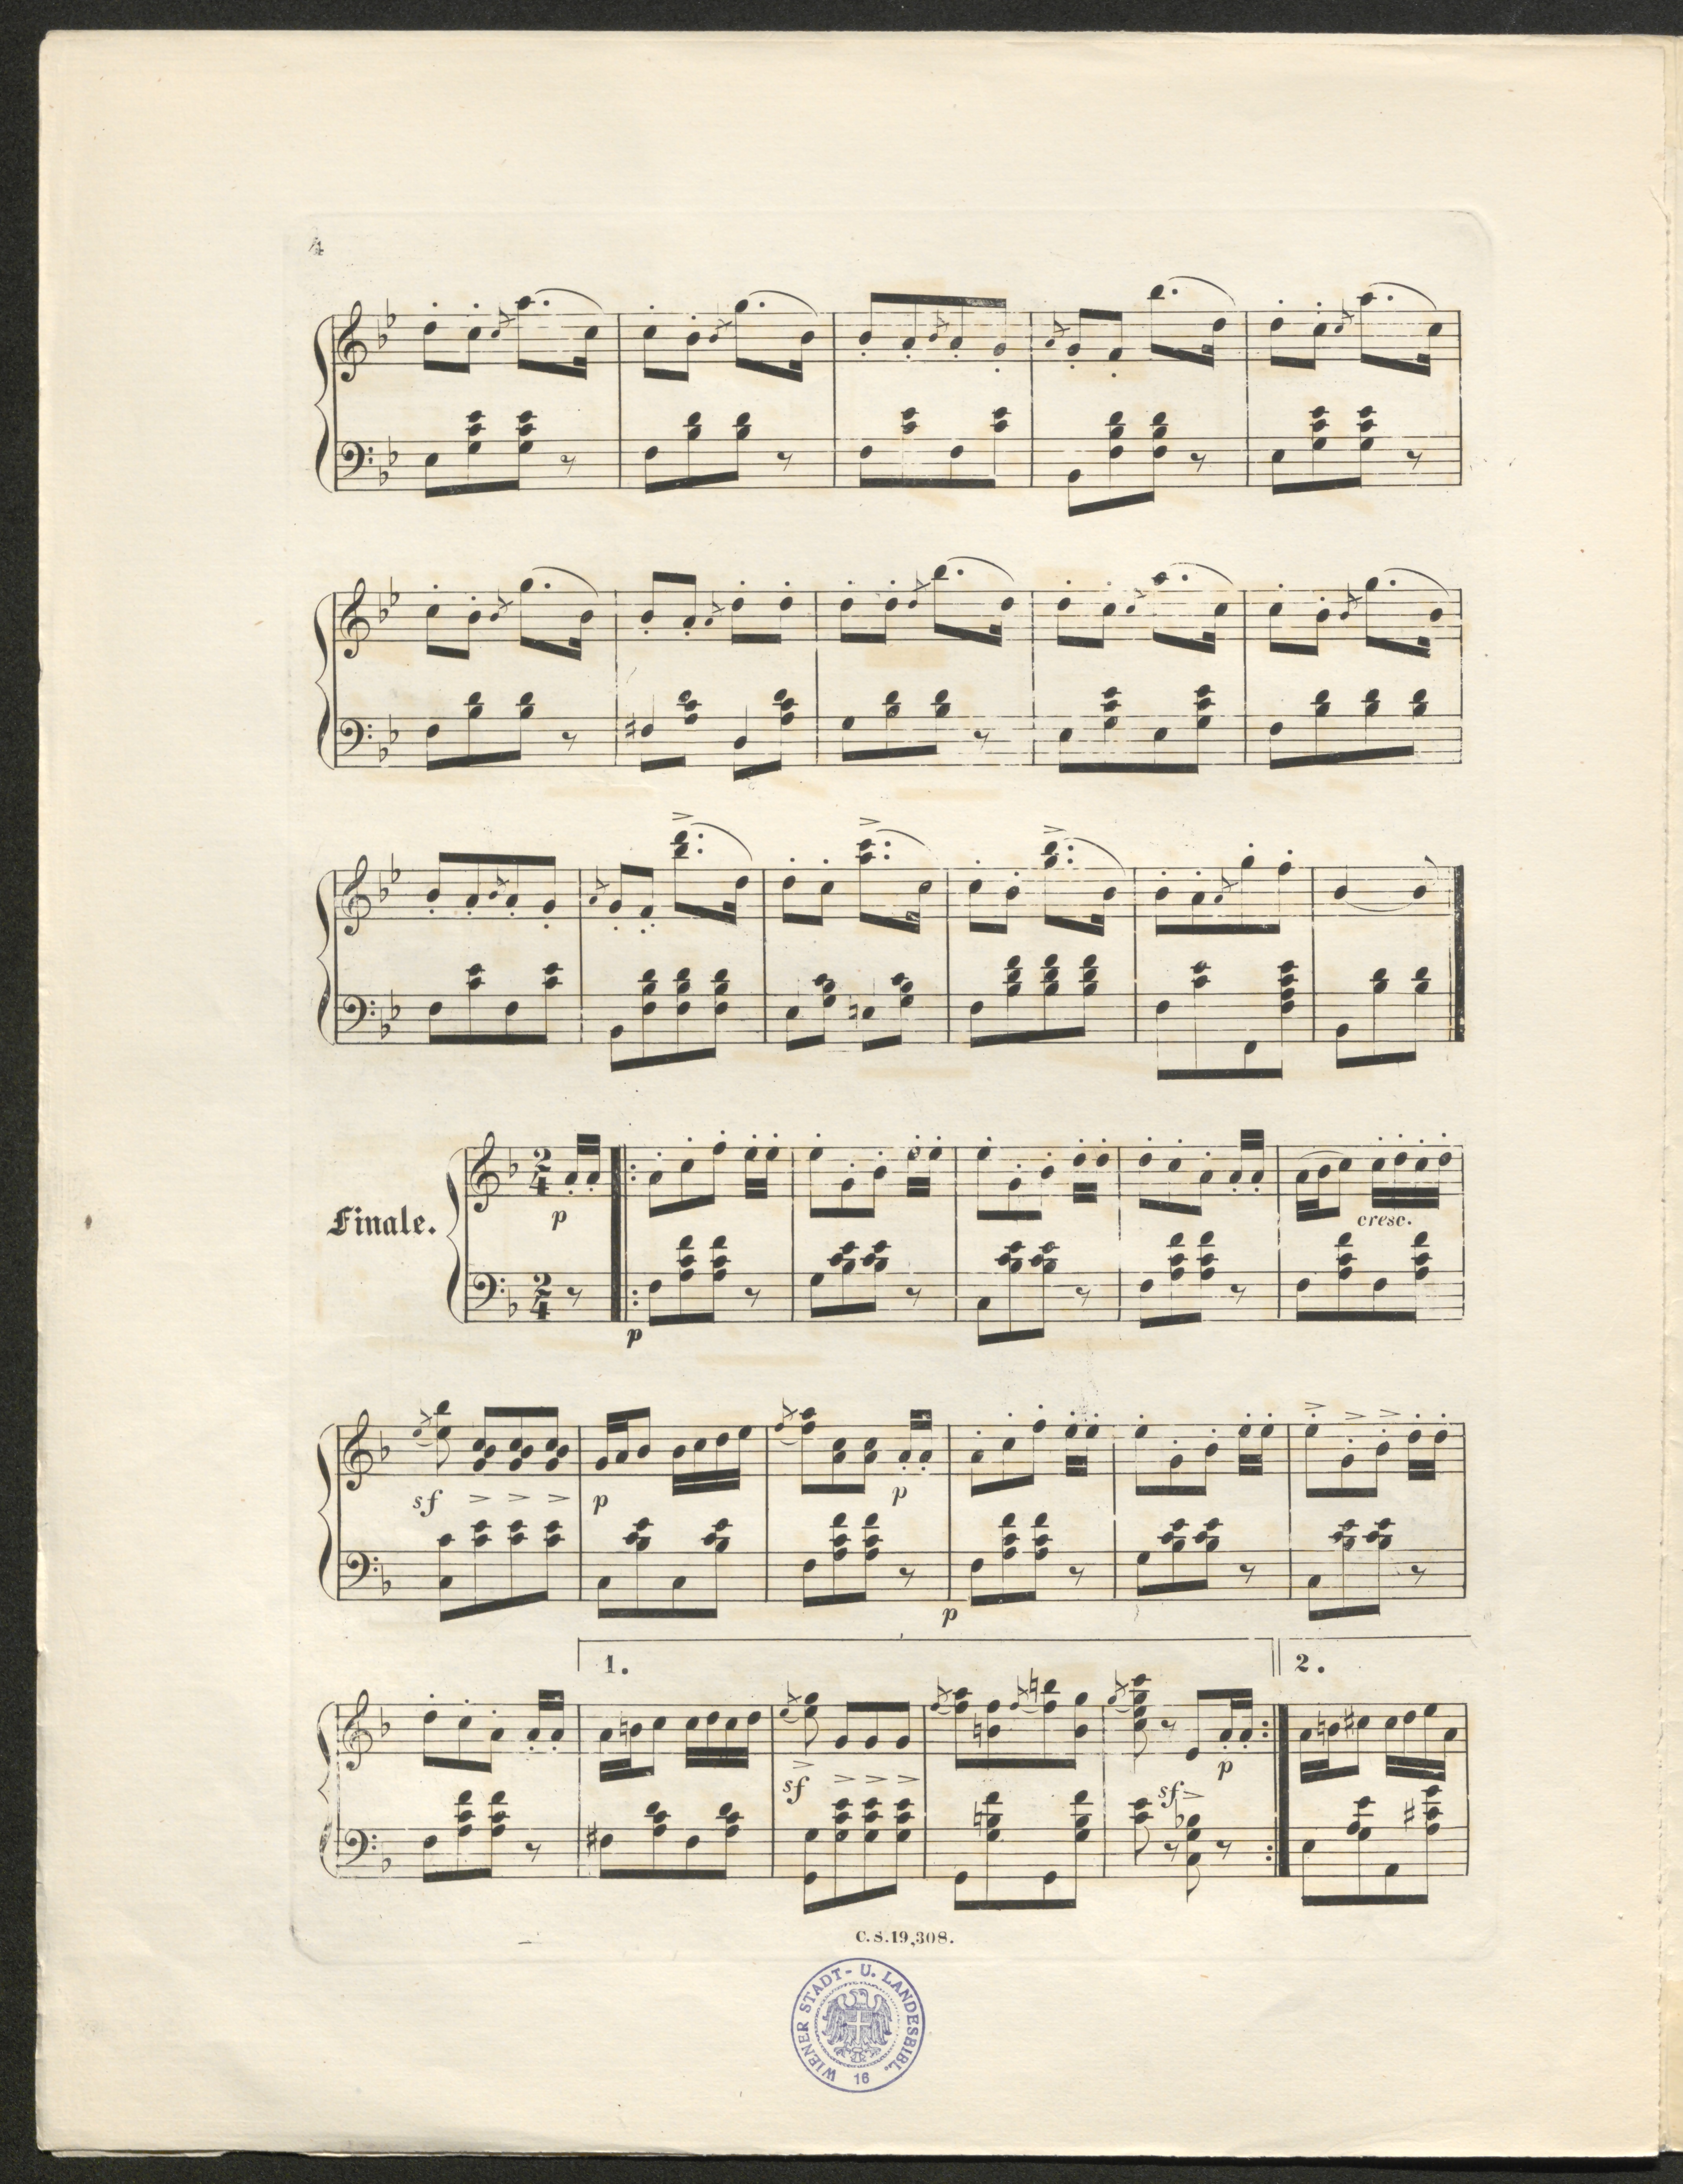 4
Finale.
p
p
cresc.
sf p p
p
1. 2.
sf sf p
C.S.19,308.
WIENER STADT- U. LANDESBIBL.
16